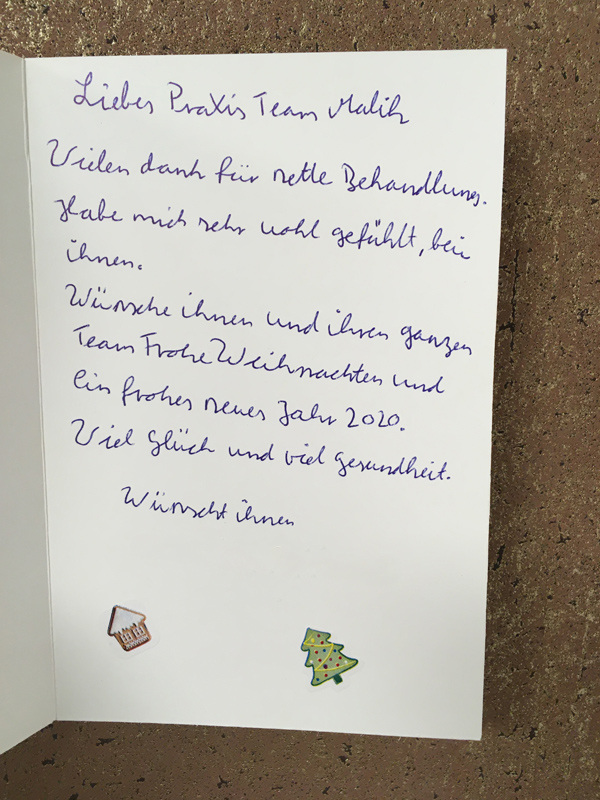 Liebes Praxis Team Malik
Vielen dank für nette Behandlung.
Habe mich sehr wohl gefühlt, bei
ihnen.
Wünsche ihnen und ihren ganzen
Team Frohe Weihnachten und
ein frohes neues Jahr 2020.
Viel Glück und viel gesundheit.
Wünscht ihnen